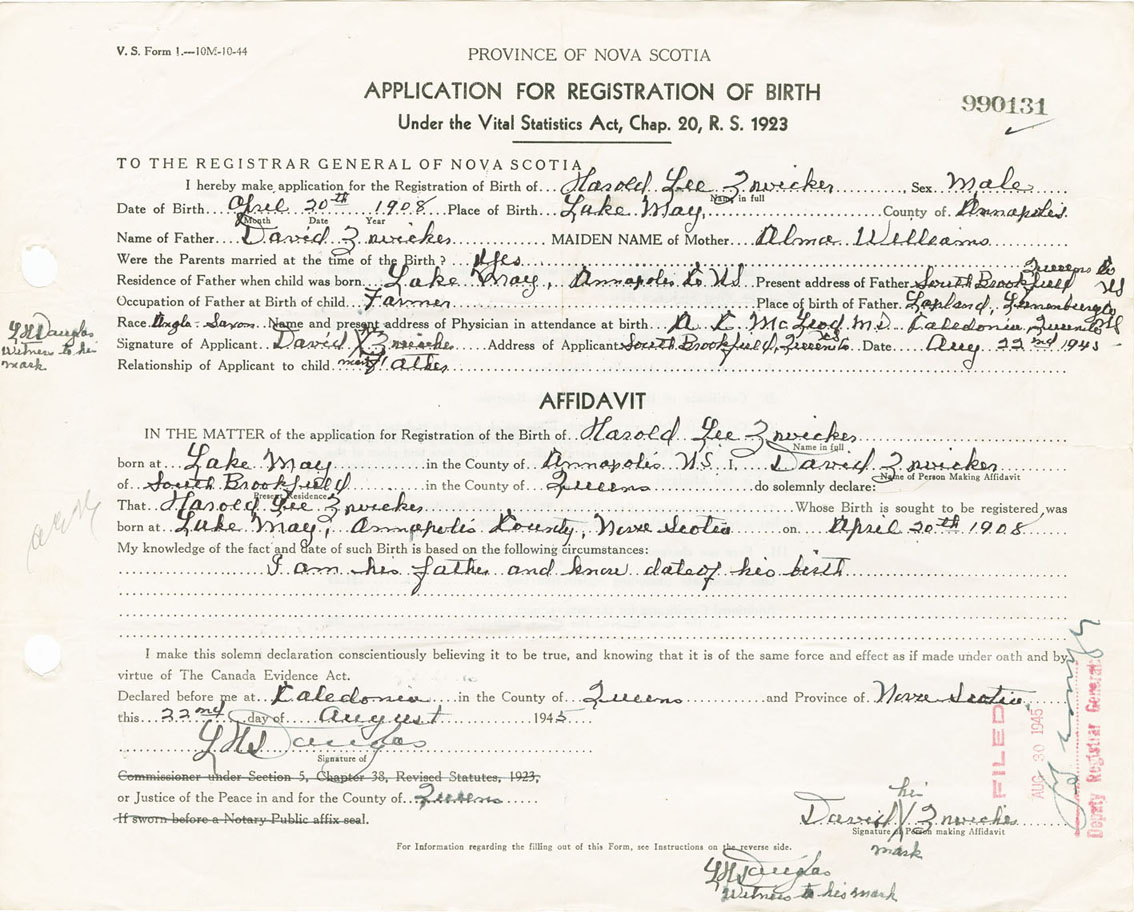 V. S. Form 1.—10M-10-44
PROVINCE OF NOVA SCOTIA
APPLICATION FOR REGISTRATION OF BIRTH
990131
Under the Vital Statistics Act, Chap. 20, R. S. 1923
TO THE REGISTRAR GENERAL OF NOVA SCOTIA
I hereby make application for the Registration of Birth of Harold Lee Zwicker Sex Male
Name in full
Date of Birth April 20th 1908 Place of Birth Lake May, County of Annapolis.
Month Date Year
Name of Father David Zwicker MAIDEN NAME of Mother Alma Williams
Were the Parents married at the time of the Birth? Yes
Residence of Father when child was born Lake May, Annapolis Co NS Present address of Father South Brookfield Queens Co NS
Occupation of Father at Birth of child Farmer Place of birth of Father Lapland, Lunenburg Co NS
Race Anglo-Saxon Name and present address of Physician in attendance at birth A C McLeod M.D. Caledonia, Queens
Signature of Applicant David X Zwicker Address of Applicant South Brookfield, Queens Co NS Date Aug 22nd 1945
Relationship of Applicant to child Father
his
mark
LHDauglas
Witness to his
mark
AFFIDAVIT
IN THE MATTER of the application for Registration of the Birth of Harold Lee Zwicker
Name in full
born at Lake May in the County of Annapolis NS I, David Zwicker
Name of Person Making Affidavit
of South Brookfield in the County of Queens do solemnly declare:
Present Residence
That Harold Lee Zwicker Whose Birth is sought to be registered, was
born at Lake May, Annapolis County, Nova Scotia on April 20th 1908
My knowledge of the fact and date of such Birth is based on the following circumstances:
I am his father and know date of his birth
I make this solemn declaration conscientiously believing it to be true, and knowing that it is of the same force and effect as if made under oath and by
virtue of The Canada Evidence Act.
Declared before me at Caledonia in the County of Queens and Province of Nova Scotia
this 22nd day of August 1945
LHDauglas
Signature of
Commissioner under Section 5, Chapter 38, Revised Statutes, 1923,
or Justice of the Peace in and for the County of Queens
If sworn before a Notary Public affix seal.
his
David X Zwicker
Signature of Person making Affidavit
mark
For Information regarding the filling out of this Form, see Instructions on the reverse side.
LHDauglas
Witness to his mark
FILED
AUG 30 1945
Deputy Registrar General